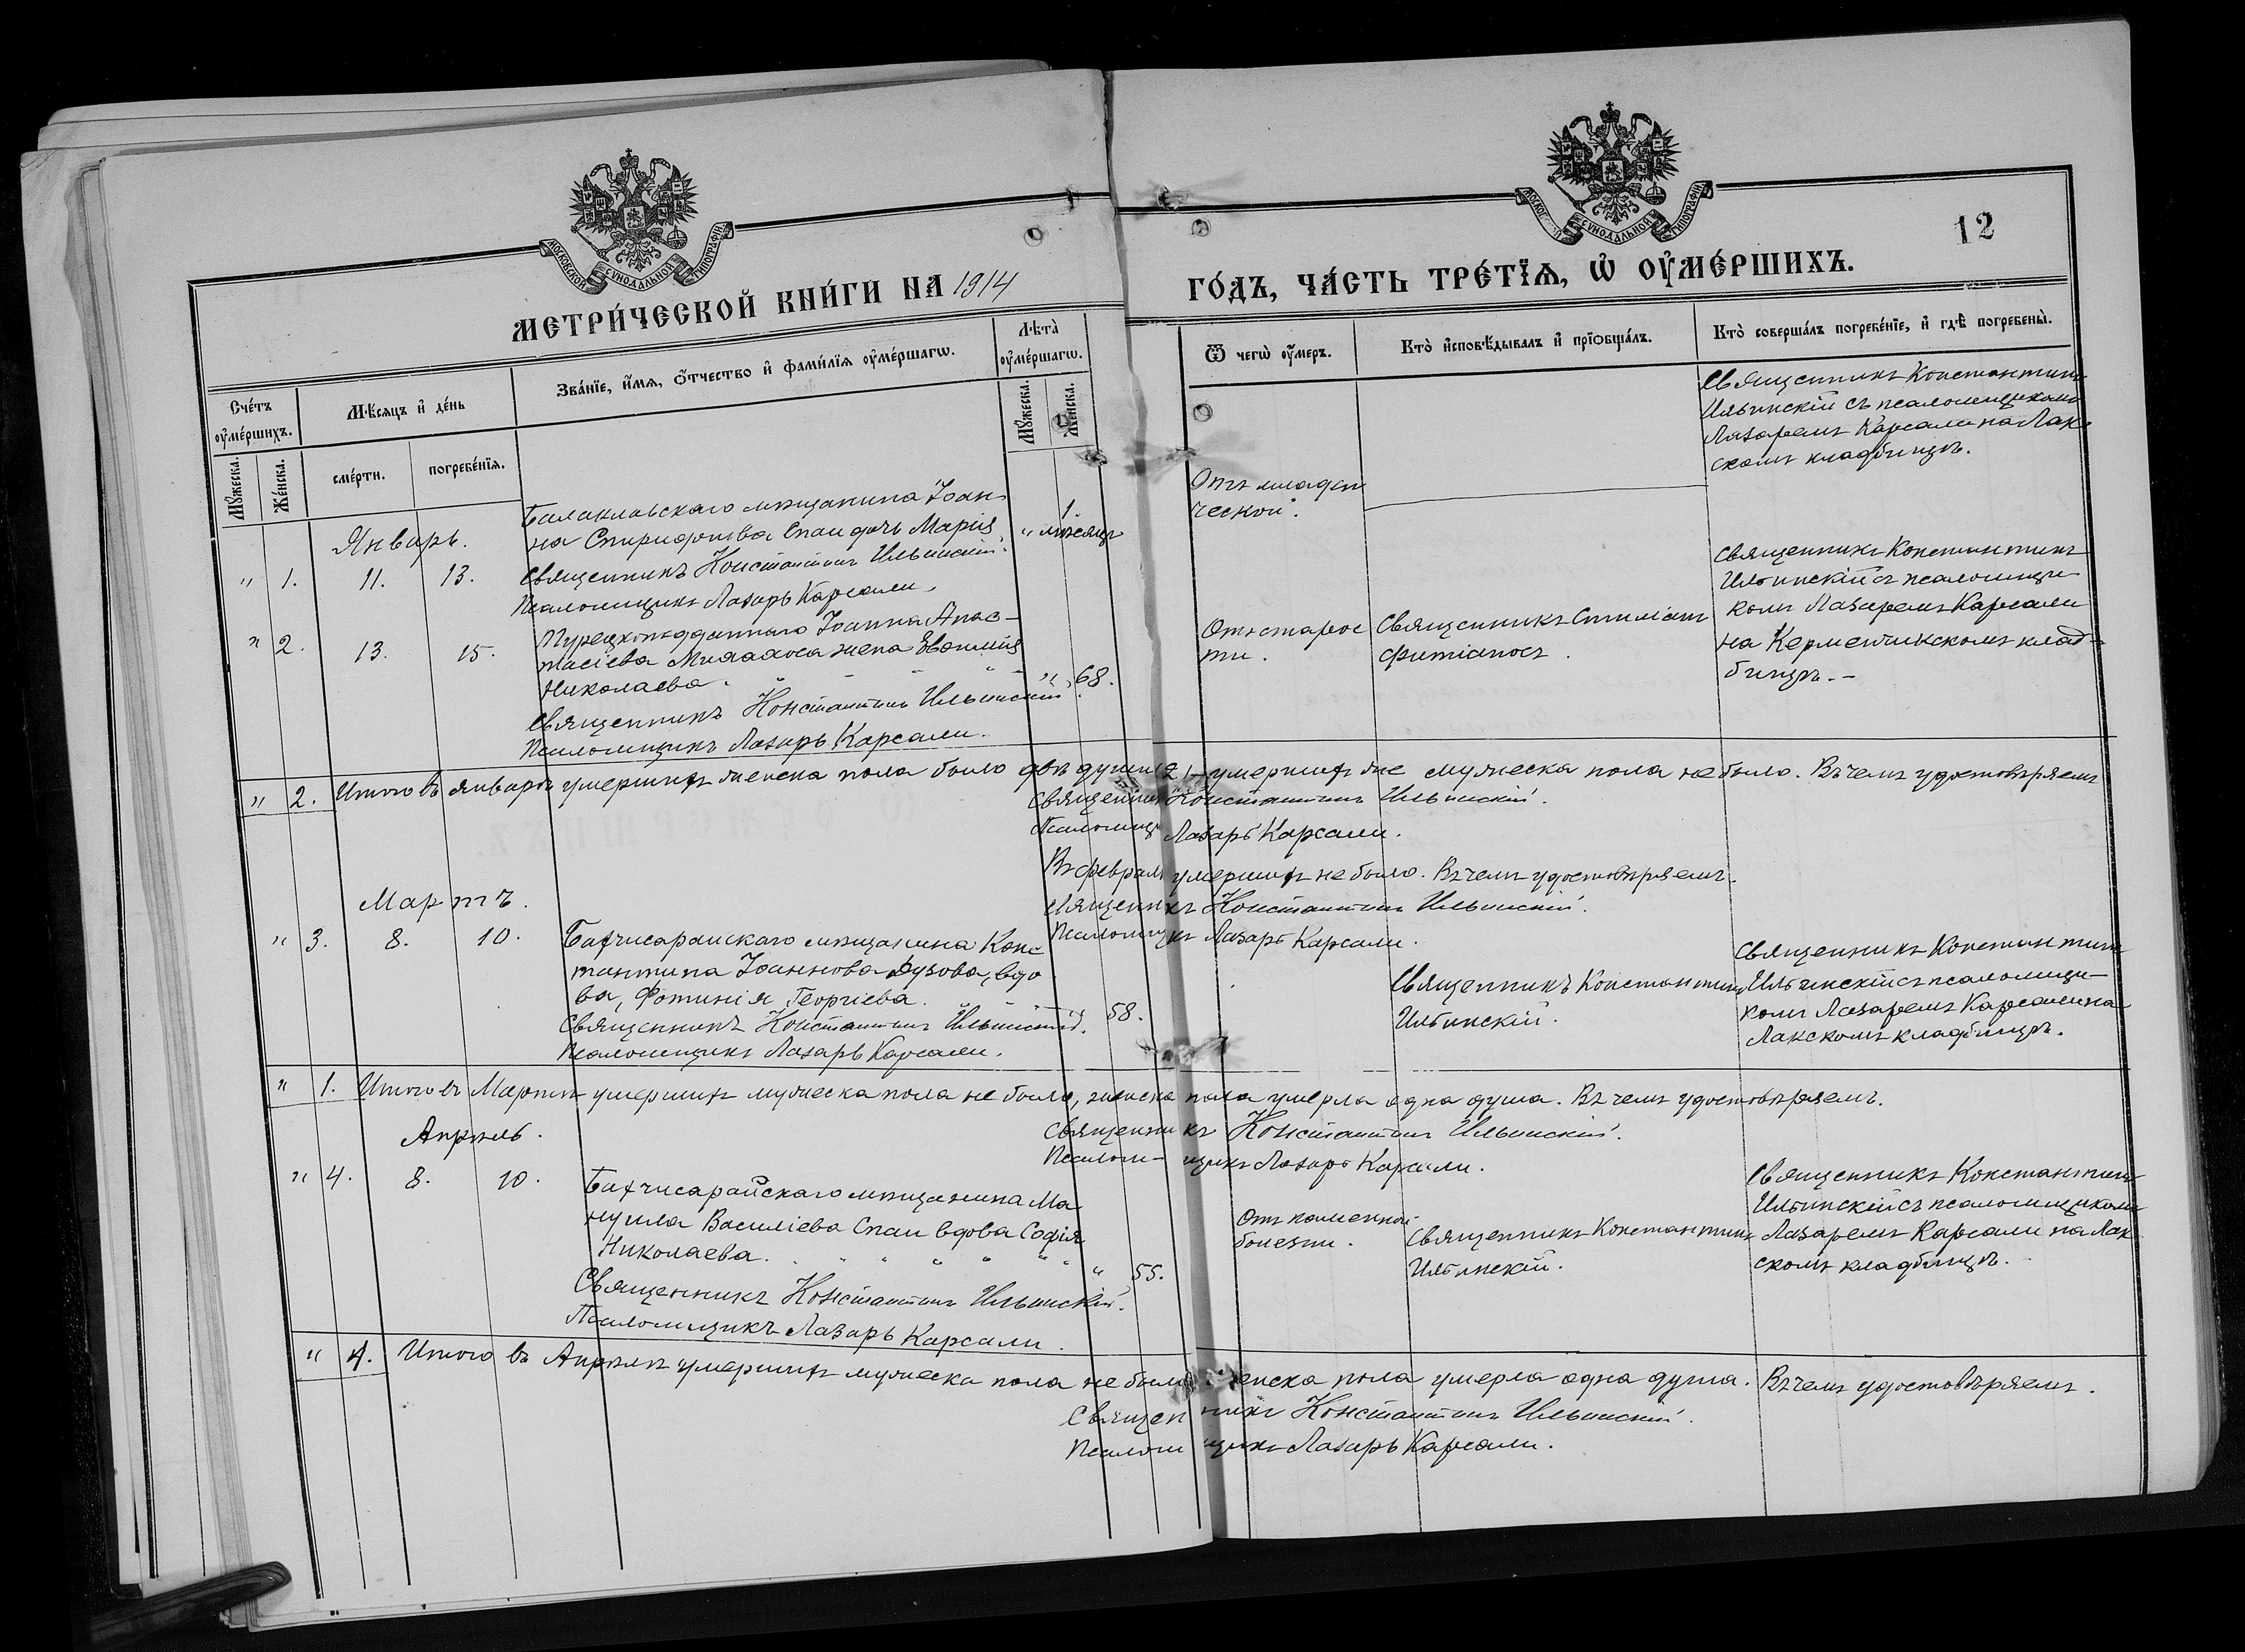 МОСКОВСКОЙ СУНОДАЛЬНОЙ ТИПОГРАФІИ
МОСКОВ СУНОДАЛЬНОЙ ТИПОГРАФІИ
12
МЕТРИ́ЧЕСКОЙ КНИ́ГИ НА 1914
ГО́ДЪ, ЧА́СТЬ ТРЕ́ТЇѦ, Ѡ҆ ОУ҆МЕ́РШИХЪ.
Сче́тъ оу҆ме́ршихъ.
Мꙋ́жеска.
Же́нска.
Мѣ́сяцъ и҆ де́нь
сме́рти.
погребе́нїѧ.
Зва́нїе, и҆́мѧ, ѻ҆́тчество и҆ фами́лїѧ оу҆ме́ршагѡ.
Лѣ́та оу҆ме́ршагѡ.
Мꙋ́жеска.
Же́нска.
Ѿ чегѡ̀ оу҆́меръ.
Кто̀ и҆сповѣ́дывалъ и҆ прїѻбща́лъ.
Кто̀ соверша́лъ погребе́нїе, и҆ гдѣ̀ погребены̀.
Январь.
" 1. 11. 13.
Балаклавскаго мѣщанина Іоан-
на Спиридонова Спаи дочь Марія
" 1 мѣсяцъ
Священникъ Константинъ Ильинскій.
Псаломщикъ Лазарь Карсали.
Отъ младен
ческой.
Священникъ Константинъ
Ильинскій съ псаломщикомъ
Лазаремъ Карсали на Лак-
скомъ кладбищѣ.
" 2. 13. 15.
Турецкоподданнаго Іоанна Анас-
тасіева жена Евфимія
Николаева. " " " " 68.
Священникъ Константинъ Ильинскій.
Псаломщикъ Лазарь Карсали.
Отъ старос
ти.
Священникъ
Священникъ Константинъ
Ильинскій съ псаломщи-
комъ Лазаремъ Карсали
на Керменчикскомъ клад-
бищѣ.-
" 2. Итого въ январѣ умершихъ женска пола было двѣ души (2), умершихъ же мужеска пола не было. Въ чемъ удостовѣряемъ
Священникъ Константинъ Ильинскій.
Псаломщ Лазарь Карсали.
Въ феврал умершихъ не было. Въ чемъ удостовѣряемъ.
Священникъ Константинъ Ильинскій.
Псаломщикъ Лазарь Карсали.
Мартъ.
" 3. 8. 10.
Бахчисарайскаго мѣщанина Конс
тантина Іоаннова вдо
ва, Фотинія Георгіева. 58.
Священникъ Константинъ Ильинскій.
Псаломщикъ Лазарь Карсали.
Священникъ Константинъ
Ильинскій.
Священникъ Константинъ
Ильинскій съ псаломщи-
комъ Лазаремъ Карсали на
Лакскомъ кладбищѣ.
" 1. Итого въ Мартѣ умершихъ мужеска пола не было, женска пола умерла одна душа. Въ чемъ удостовѣряемъ.
Священникъ Константинъ Ильинскій.
Псалом-щикъ Лазарь Карсали.
Апрѣль.
" 4. 8. 10.
Бахчисарайскаго мѣщанина Ма
нуила Василіева Спаи вдова Софія
Николаева. " " " " " " 55.
Священникъ Константинъ Ильинскій.
Псаломщикъ Лазарь Карсали.
Отъ каменной
болезни.
Священникъ Константинъ
Ильинскій.
Священникъ Константинъ
Ильинскій съ псаломщикомъ
Лазаремъ Карсали на Лак
скомъ кладбищѣ.
" 4. Итого въ Апрѣлѣ умершихъ мужеска пола не было женска пола умерла одна душа. Въ чемъ удостовѣряемъ.
Священникъ Константинъ Ильинскій.
Псаломщикъ Лазарь Карсали.